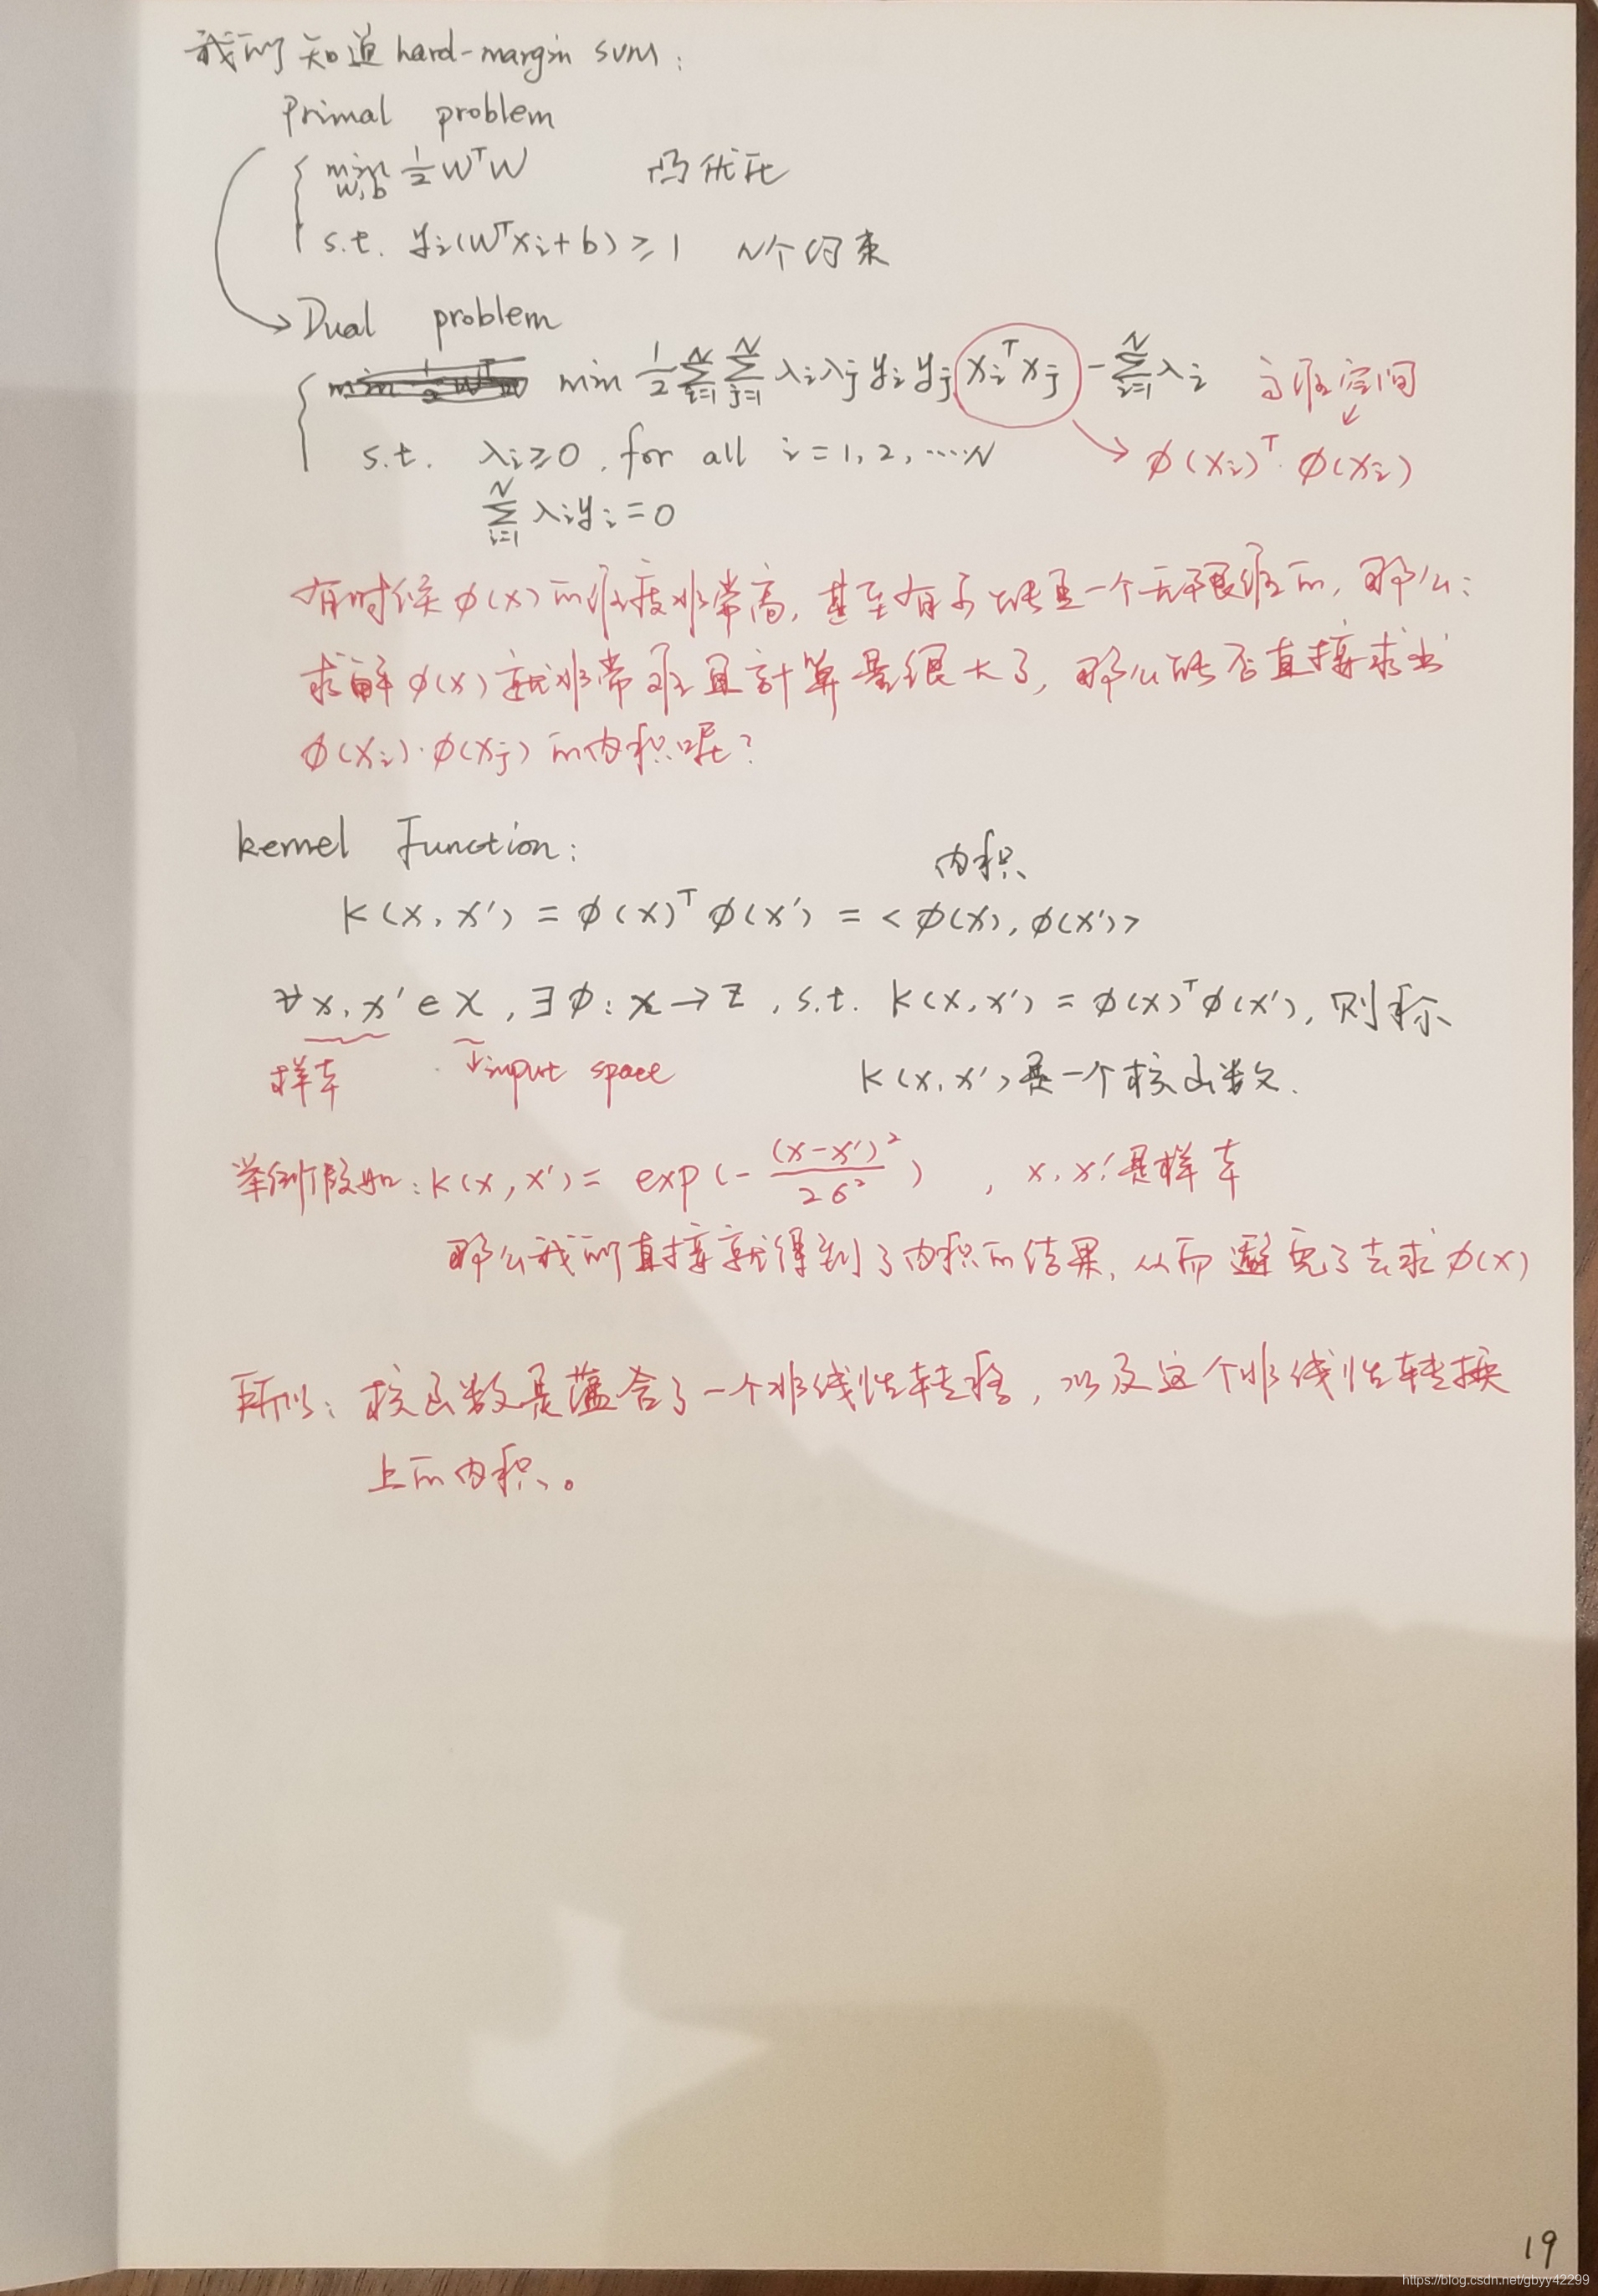 我们知道 hard-margin SVM:
Primal problem
min w,b 1/2 WᵀW 凸优化
s.t. yi(Wᵀxi+b) ≥ 1 N个约束
Dual problem
min 1/2 ∑_{i=1}^{N} ∑_{j=1}^{N} λiλj yi yj xiᵀxj - ∑_{i=1}^{N} λi 高维空间
s.t. λi≥0, for all i=1,2,…N → ϕ(xi)ᵀ·ϕ(xi)
∑_{i=1}^{N} λiyi=0
有时候ϕ(x)的维度非常高, 甚至有可能是一个无限维的, 那么:
求解ϕ(x)就非常难且计算量很大了, 那么能否直接求出
ϕ(xi)·ϕ(xj)的内积呢?
kernel Function:
内积
K(x,x') = ϕ(x)ᵀϕ(x') = <ϕ(x),ϕ(x')>
∀x,x'∈X, ∃ϕ: x→Z, s.t. K(x,x') = ϕ(x)ᵀϕ(x'), 则称
样本 ↓input space K(x,x')是一个核函数.
举例假如: K(x,x') = exp(-(x-x')²/2σ²), x,x'是样本
那么我们直接就得到了内积的结果, 从而避免了去求ϕ(x)
所以: 核函数是蕴含了一个非线性转换, 以及这个非线性转换
上的内积。
19
https://blog.csdn.net/gbyy42299